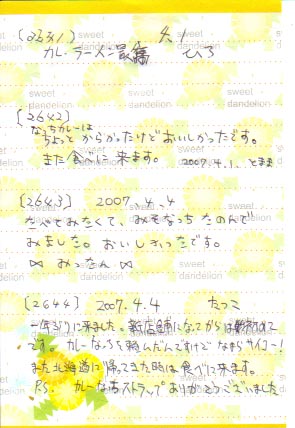 4.1
カレーラーメン最高 ひろ
[2642]
なっちカレーは
ちょっとからかったけどおいしかったです。
また食べに来ます。 2007.4.1.
[2643] 2007.4.4
たべてみたくて、みそなっちたのんで
みました。おいしかったです。
⋈ みったん ⋈
[2644] 2007.4.4 たっこ
一年ぶりに来ました。新店舗になってからは初めて
です。カレーなっちを頼んだんですけどなまらサイコー!
また北海道に帰ってきた時は食べに来ます。
P.S. カレーな店ストラップありがとうございました
sweet dandelion